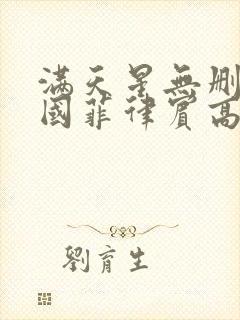 滿天星無刪
國菲律賓高
劉育生